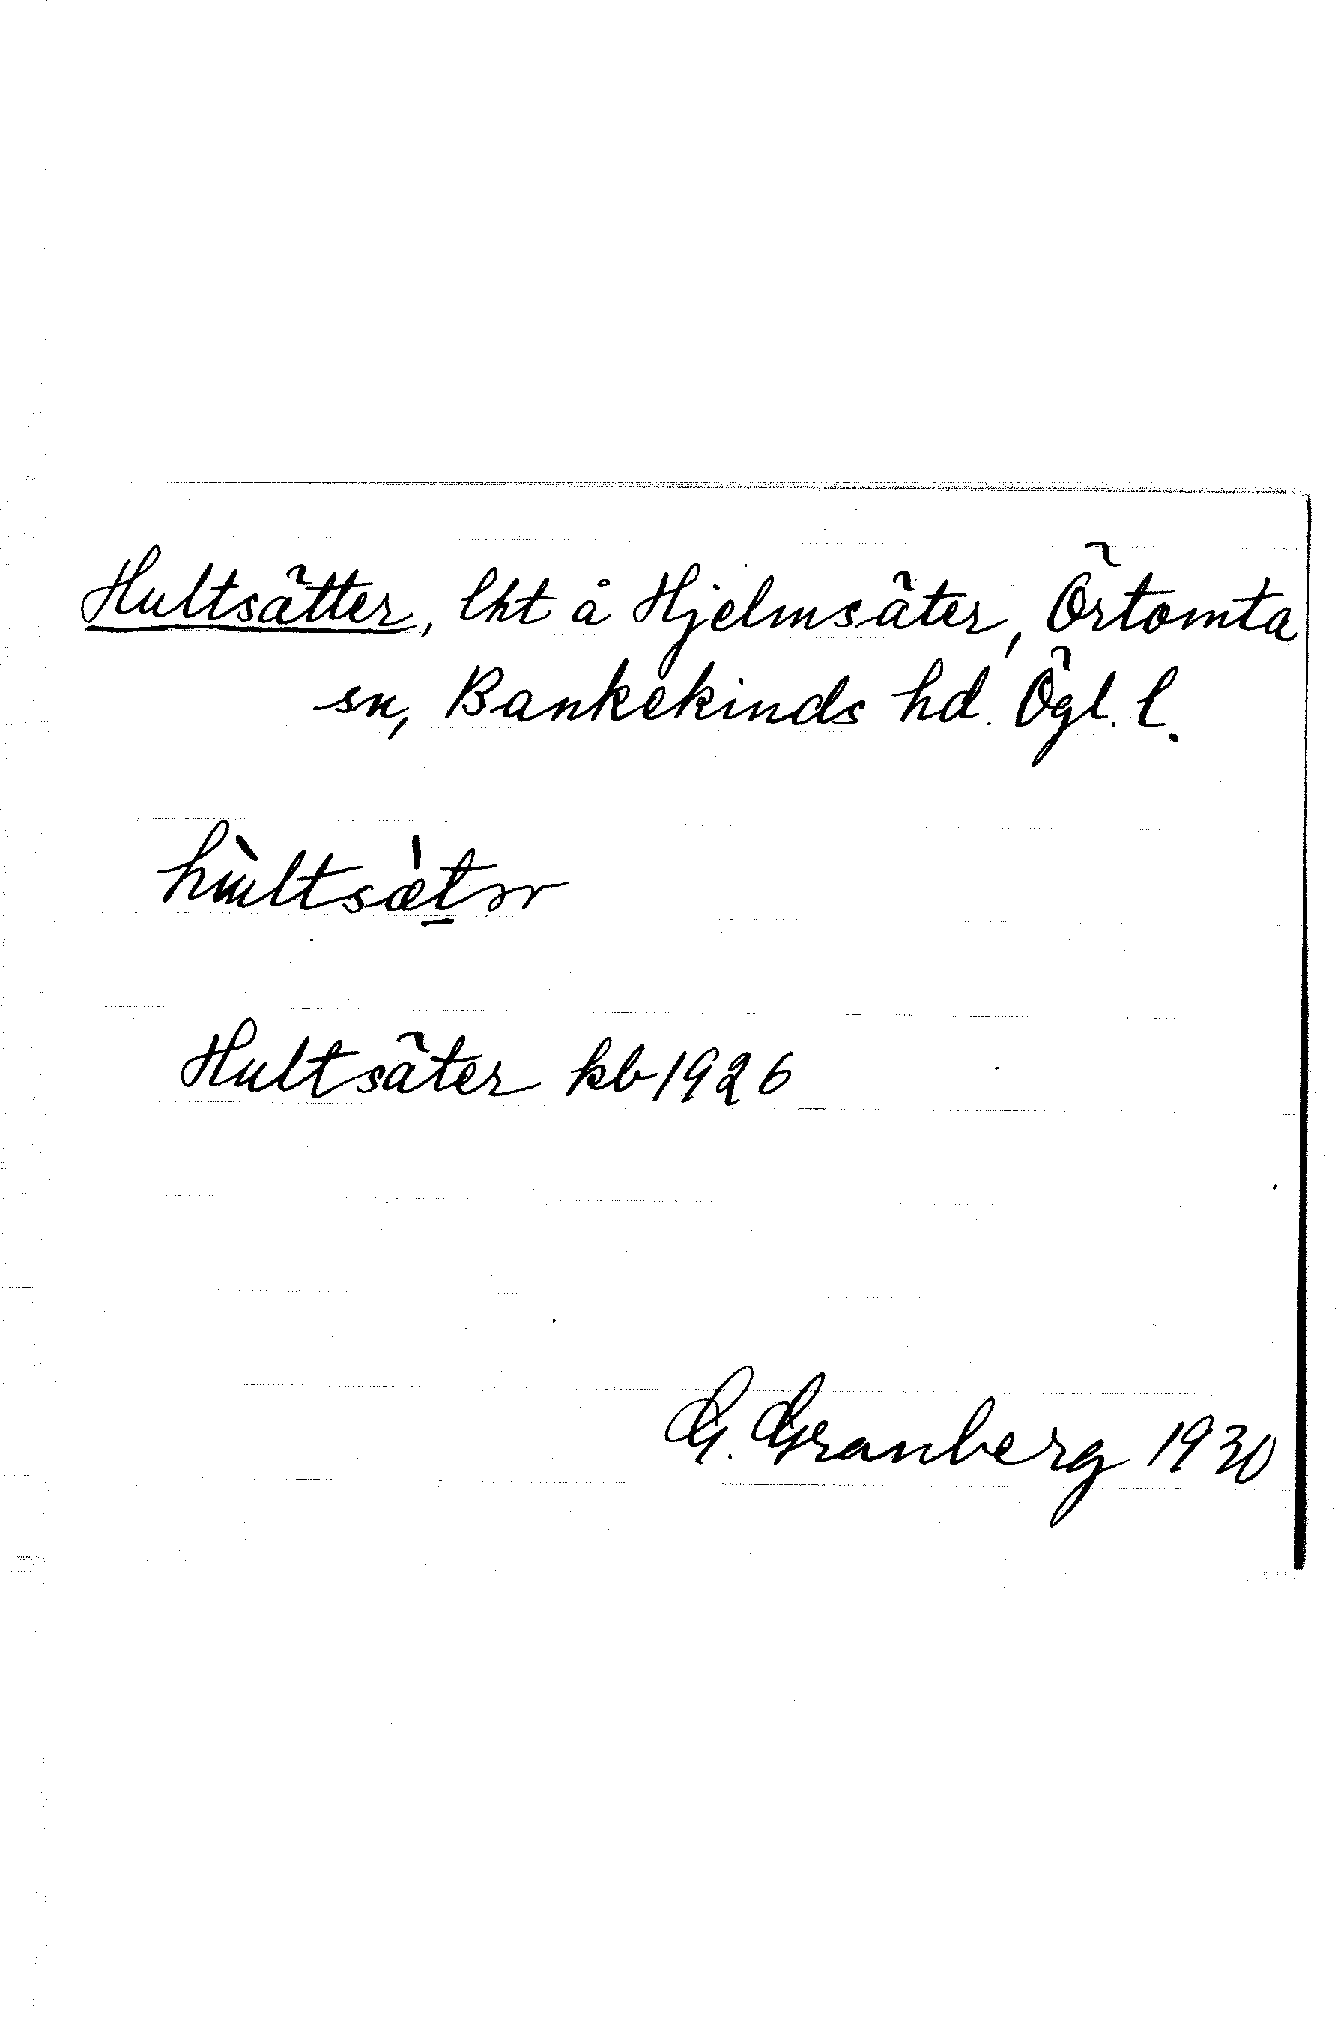 Hultsätter, lht å Hjelmsäter, Örtomta
sn, Bankekinds hd. Ögl. l.
hùltsæ̀tər
Hultsäter kb 1926
G. Granberg 1930